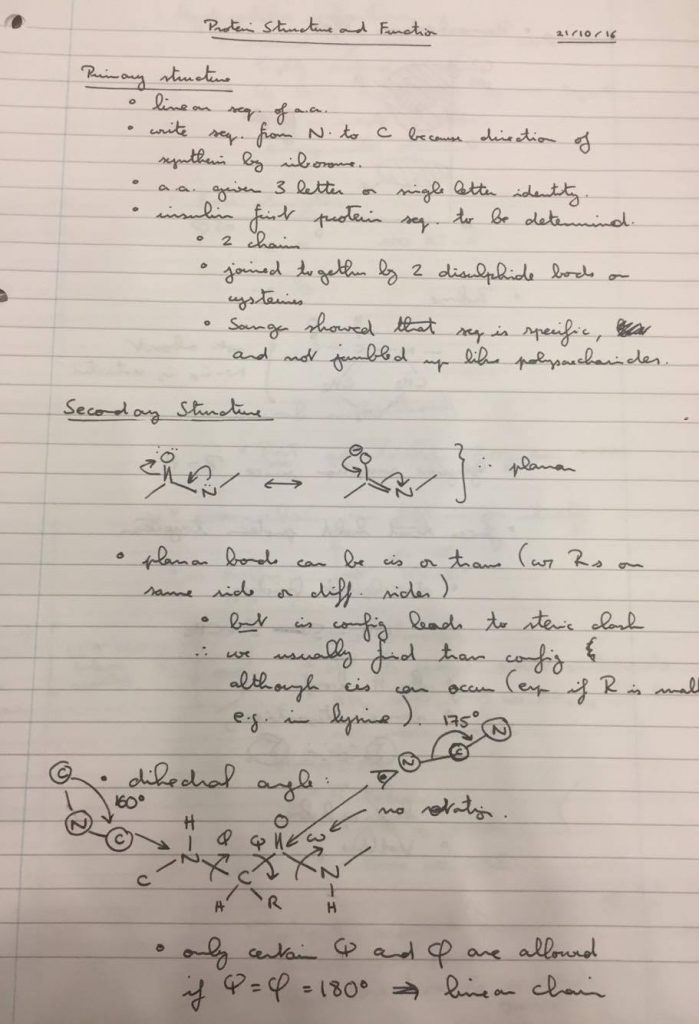 Protein Structure and Function 21/10/16
Primary structure
• linear seq. of a.a.
• write seq. from N to C because direction of
synthesis by ribosome.
• a.a. given 3 letter or single letter identity.
• insulin first protein seq. to be determined.
• 2 chain
• joined together by 2 disulphide bods on
cysteines
• Sanger showed that seq is specific,
and not jumbled up like polysaccharides.
Secondary Structure
O O
N ↔ N } ∴ planar
• planar bonds can be cis or trans (w/ Rs on
same side or diff. sides)
• but cis config leads to steric clash
∴ we usually find trans config
although cis can occur (esp if R is small
e.g. in lysine). 175°
N C N
C • dihedral angle:
160° no rotation.
N C H φ ψ O ω
C N C N
H R H
• only certain φ and ψ are allowed
if φ = ψ = 180° ⇒ linear chain